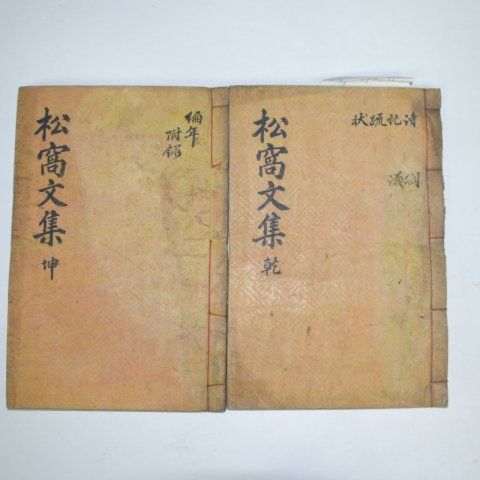 詩記疏狀
松窩文集 乾
編年
附錄
松窩文集 坤